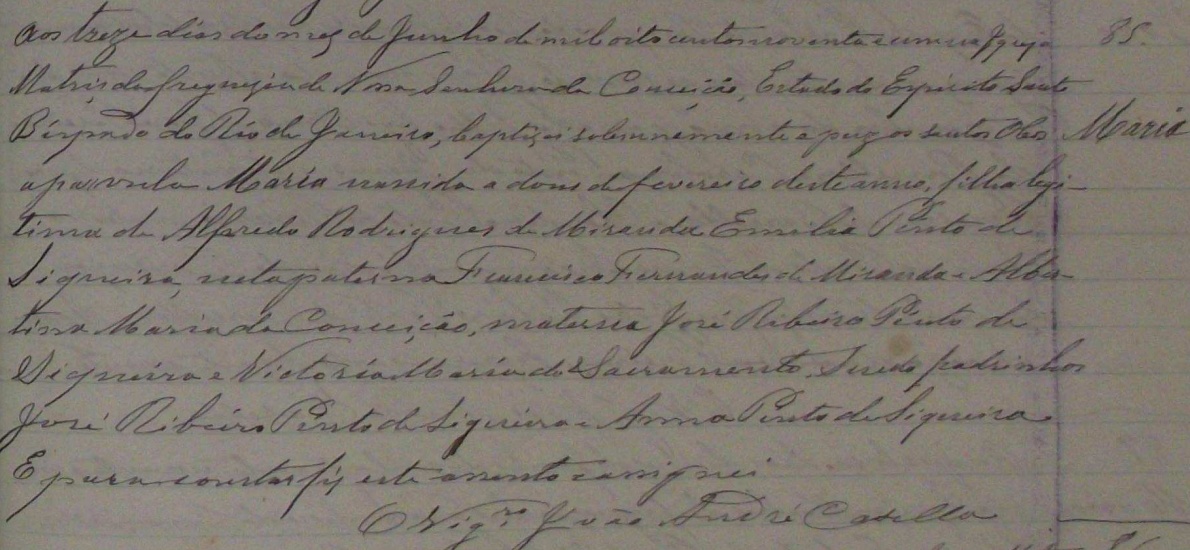 Aos treze dias do mez de Junho de mil oito centos noventa e um na Igreja 85.
Matris da freguezia de Nossa Senhora da Conceição, Estado do Espirito Santo
Bispado do Rio de Janeiro, baptizei solemnemente e puz os santos Oleos Maria
a parvula Maria nascida a dous de fevereiro deste anno, filha legi-
tima de Alfredo Rodrigues de Miranda Emilia Pinto de
Siqueira, neta paterna Francisco Fernandes de Miranda e Alber-
tina Maria da Conceição, materna José Ribeiro Pinto de
Siqueira e Victoria Maria do Sacramento. Sendo padrinhos
José Ribeiro Pinto de Siqueira e Anna Pinto de Siqueira
E para constar fiz este assento e assignei
O Vigrº João André Casella